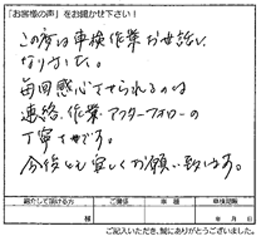 「お客様の声」をお聞かせ下さい！
この度は車検作業お世話に
なりました。
毎回感心させられるのは
連絡・作業・アフターフォローの
丁寧さです。
今後とも宜しくお願い致します。
紹介して頂ける方 ご関係 車種 車検満期
様 年 月 日
ご記入いただき、誠にありがとうございました。